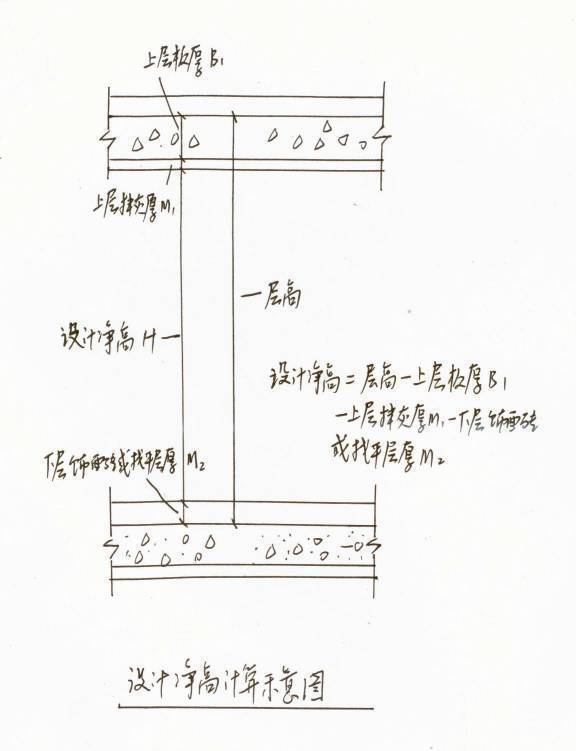 上层板厚B1
上层抹灰厚M1
一层高
设计净高H
设计净高=层高-上层板厚B1
-上层抹灰厚M1-下层饰面砖
或找平层厚M2
下层饰面砖或找平层厚M2
设计净高计算示意图